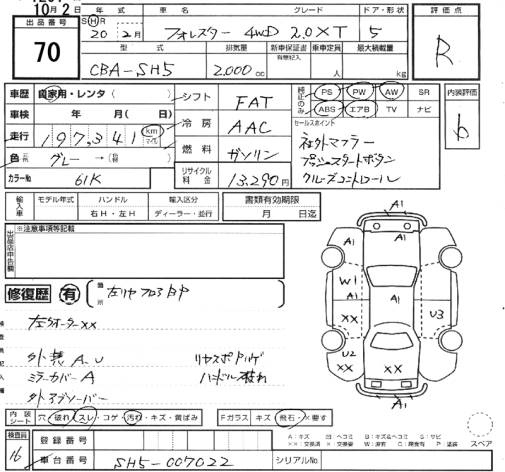 10月2日
出品番号
70
年式
S H R
20 2月
車名
フォレスター 4WD 2.0XT
グレード
ドア・形状
5
型式
CBA-SH5
排気量
2,000cc
新車保証書
有無記入
乗車定員
人
最大積載量
kg
評価点
R
内装評価
b
車歴 自家用・レンタ( )
車検 年 月( 日)
走行 197,341 km マイル
色 グレー →
カラーNo 61K
シフト FAT
冷房 AAC
燃料 ガソリン
リサイクル料金 13,290円
純正のみ
PS PW AW SR
ABS エアB TV ナビ
セールスポイント
社外マフラー
プッシュスタートボタン
クルーズコントロール
輸入車
モデル年式
年
ハンドル
右H・左H
輸入区分
ディーラー・並行
書類有効期限
月 日迄
出品店申告欄
※注意事項等記載
修復歴 有
箇所
左リヤフロア部中
左クォーターXX
外装A.U
ミラーカバーA
外アブソーバー
リヤスポハゲ
ハンドル破れ
内装シート
穴・破れ・スレ・コゲ・汚れ・キズ・黄ばみ
Fガラス
キズ・飛石・X要す
検査員
16
登録番号
車台番号 SH5-007022
シリアルNo
A1
A1
A1
A1
A1
W1
XX
U3
U2
XX
XX
A1
スペア
A：キズ U：ヘコミ B：キズ&ヘコミ S：サビ
XX：交換済 X：要交換 W：波有 C：腐食有 P：塗装